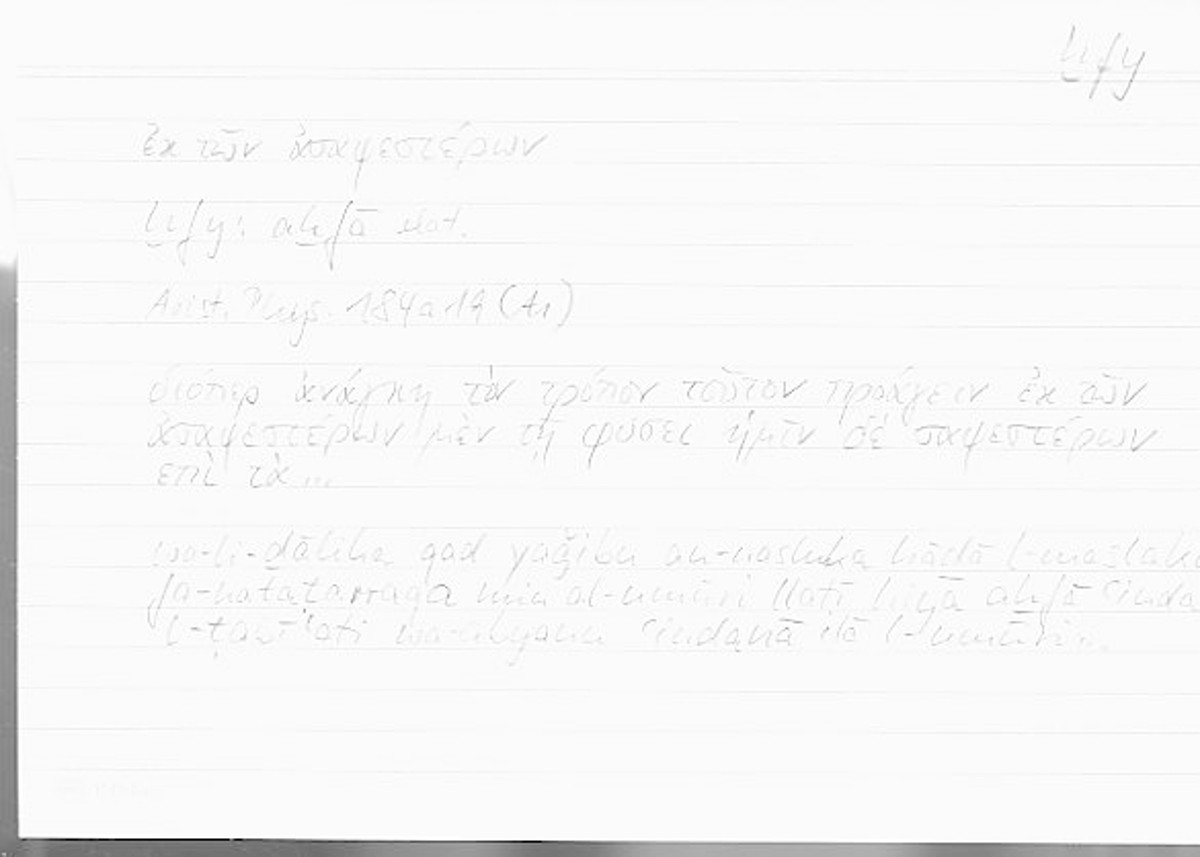 ḫfy
ἐκ τῶν ἀσαφεστέρων
ḫfy: aḫfā elat.
Arist. Phys. 184a19 (A1)
διόπερ ἀνάγκη τὸν τρόπον τοῦτον προάγειν ἐκ τῶν
ἀσαφεστέρων μὲν τῇ φύσει ἡμῖν δὲ σαφεστέρων
ἐπὶ τὰ ...
wa-li-ḏālika qad yaǧibu an-nasluka hāḏā l-maslaka
fa-natatarraqa min al-umūri llatī hiya aḫfā ʿinda
l-ṭabīʿati wa-abyanu ʿindanā ilā l-umūri...